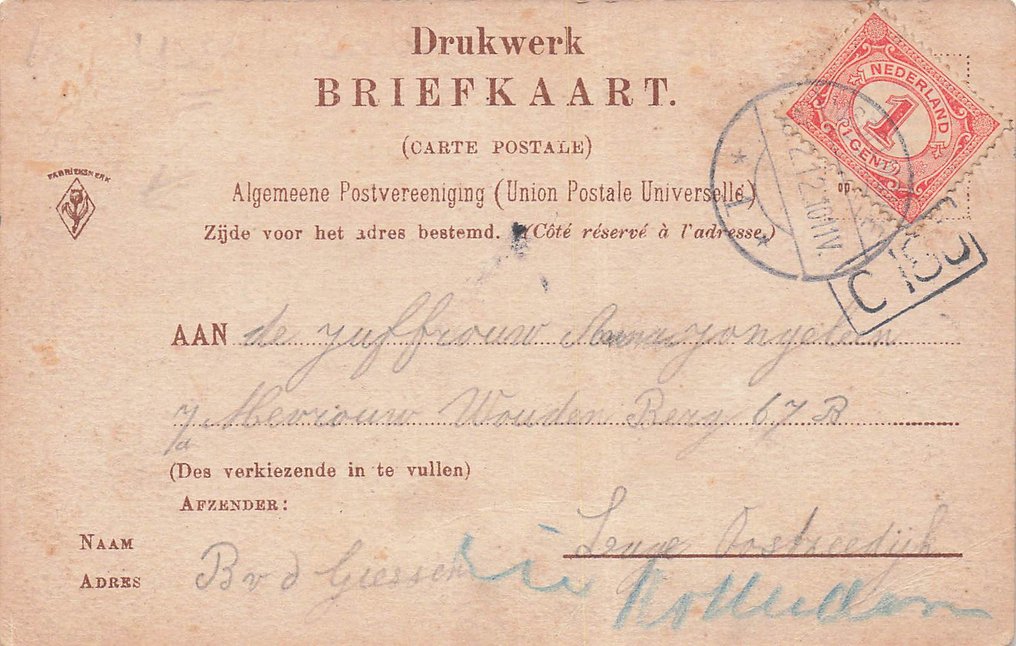 Drukwerk
BRIEFKAART.
(CARTE POSTALE)
Algemeene Postvereeniging (Union Postale Universelle)
Zijde voor het adres bestemd. (Côté réservé à l'adresse.)
FABRIEKSMERK
NEDERLAND
1
(1 CENT)
2 12.10 11V.
C 183
AAN de Juffrouw Anna Jongeleen
Mevrouw Wouden Berg 67 B
(Des verkiezende in te vullen)
AFZENDER:
Lange Oostzeedijk
NAAM
ADRES
B v d Giessen
Rotterdam